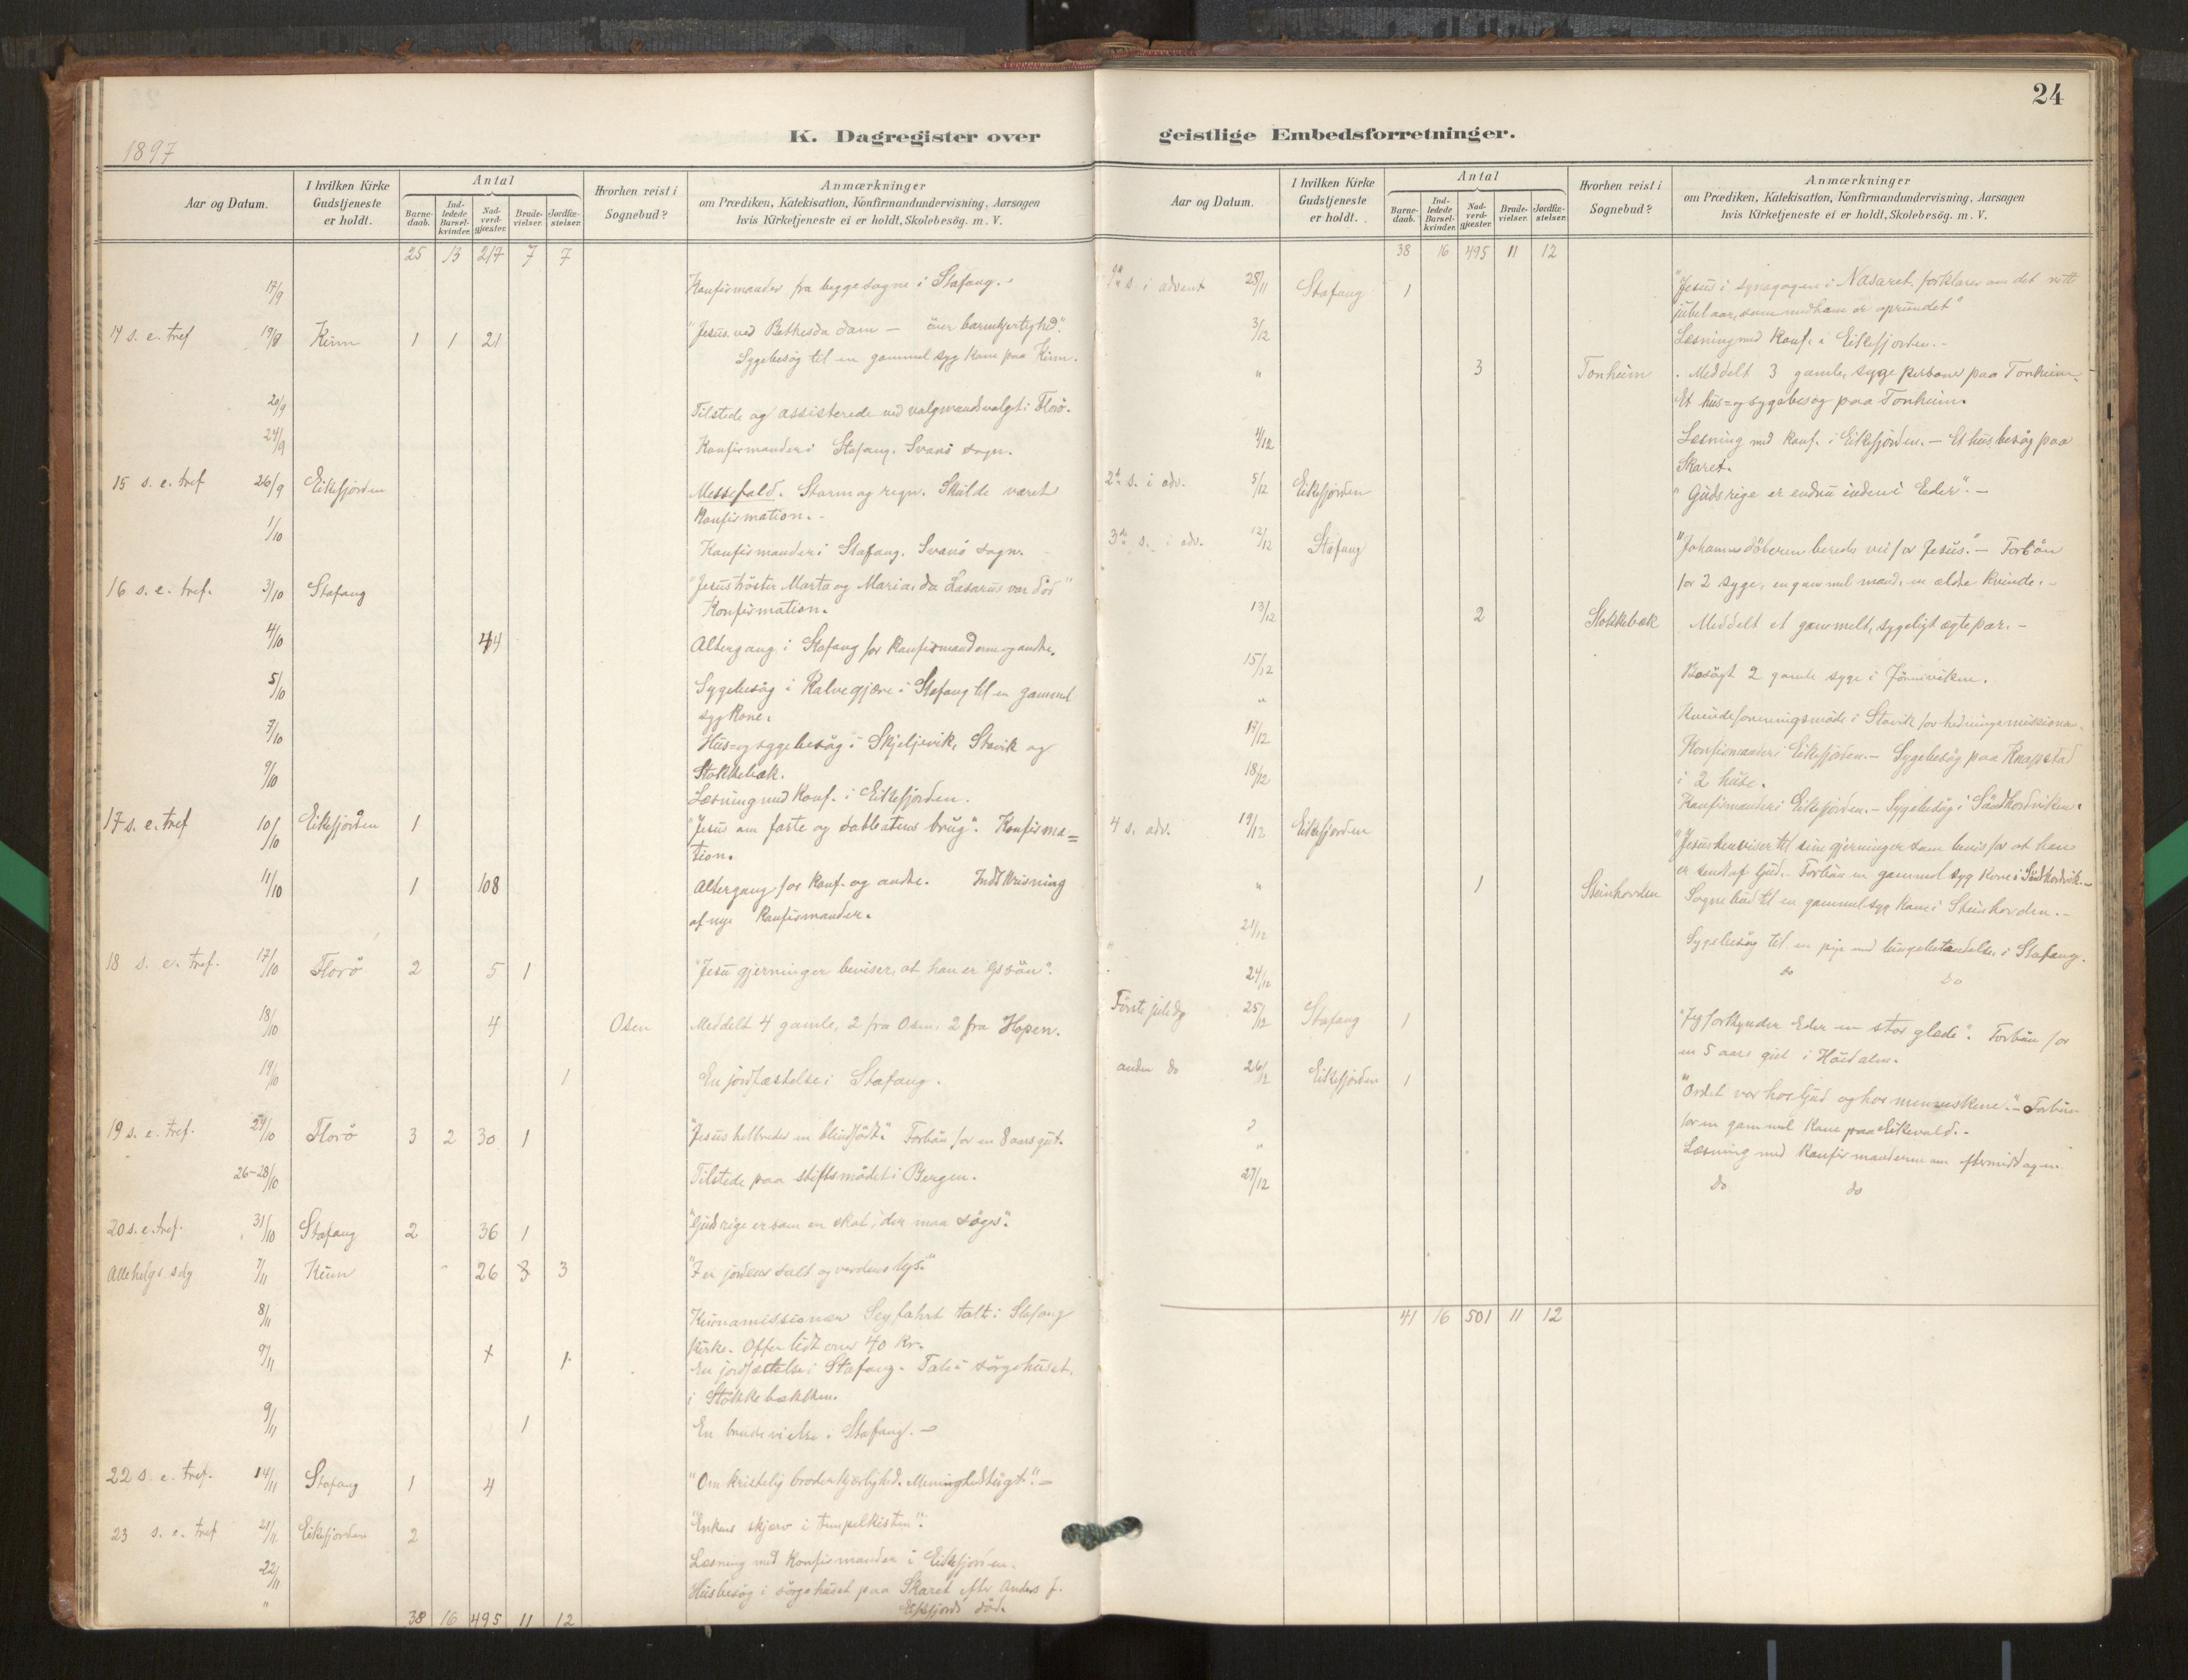 24
K. Dagregister over geistlige Embedsforretninger.
1897
Aar og Datum. I hvilken Kirke Gudstjeneste er holdt. Antal Hvorhen reist i Sognebud? Anmærkninger
Barne-daab. Ind-ledede Barsel-kvinder. Nad-verd-gjæster. Brude-vielser. Jordfæ-stelser. om Prædiken, Katekisation, Konfirmandundervisning, Aarsagen hvis Kirketjeneste ei er holdt, Skolebesög. m. V.
25 13 217 7 7
17/9 Konfirmander fra begge sogne i Stafang.
14 s. e. tref 19/9 Kinn 1 1 21 "Jesus ved Bethesda dam — barmhjertighed".
Sygebesøg til en gammel syg kone paa Kinn.
20/9 Tilstede og assisterede ved valgmandsvalget i Florö.
24/9 Konfirmander i Stafang. Svanö sogn.
15 s. e. tref 26/9 Eikefjorden Messefald. Storm og regn. Skulde været
konfirmation.
1/10 Konfirmander i Stafang. Svanö sogn.
16 s. e. tref. 3/10 Stafang "Jesus tröster Marta og Maria, da Lasarus var död"
Konfirmation.
4/10 44 Altergang i Stafang for konfirmanderne og andre.
5/10 Sygebesög i Kalvegjære i Stafang til en gammel
syg kone.
7/10 Hus- og sygebesög i Skjeljevik, Stavik og
Stokkebæk.
9/10 Læsning med konf. i Eikefjorden.
17 s. e. tref 10/10 Eikefjorden 1 "Jesus om faste og sabbatens brug". Konfirma=
tion.
11/10 1 108 Altergang for konf. og andre. Indskrivning
af nye konfirmander.
18 s. e. tref. 17/10 Florö 2 5 1 "Jesu gjerninger beviser, at han er Gs sön".
18/10 4 Osen Meddelt 4 gamle, 2 fra Osen, 2 fra Hopen.
19/10 1 En jordfæstelse i Stafang.
19 s. e. tref. 24/10 Florö 3 2 30 1 "Jesus helbreder en blindfödt." Forbön for en 8 aars gut.
26-28/10 Tilstede paa stiftsmödet i Bergen.
20 s. e. tref. 31/10 Stafang 2 36 1 "Guds rige er som en skat, der maa söges".
Allehelgs. sdg 7/11 Kinn 26 3 3 "I er jordens salt og verdens lys."
8/11 Kinamissionær Seyffahrt talte i Stafang
kirke. Offer lidt over 40 kr.
9/11 + 1 En jordfæstelse i Stafang. Tale i sörgehuset
i Stokkebækken.
9/11 1 En brudevielse i Stafang.
22 s. e. tref. 14/11 Stafang 1 4 "Om kristelig broderkjærlighed. Menighedstugt".
23 s. e. tref 21/11 Eikefjorden 2 "Enkens skjærv i tempelkisten".
22/11 Læsning med konfirmander i Eikefjorden.
" Husbesög i sörgehuset paa Skaret efter Anders J.
Eikefjords död.
38 16 495 11 12
Aar og Datum. I hvilken Kirke Gudstjeneste er holdt. Antal Hvorhen reist i Sognebud? Anmærkninger
Barne-daab. Ind-ledede Barsel-kvinder. Nad-verd-gjæster. Brude-vielser. Jordfæ-stelser. om Prædiken, Katekisation, Konfirmandundervisning, Aarsagen hvis Kirketjeneste ei er holdt, Skolebesög. m. V.
38 16 495 11 12
s. i advent 28/11 Stafang 1 "Jesus i synagogen i Nasaret, forklarer om det rette
jubelaar, som med ham er oprundet"
3/12 Læsning med konf. i Eikefjorden.
" 3 Tonheim Meddelt 3 gamle, syge personer paa Tonheim.
Et hus- og sygebesög paa Tonheim.
4/12 Læsning med konf. i Eikefjorden. — Et husbesög paa
Skaret.
2d s. i adv. 5/12 Eikefjorden "Guds rige er endnu inden i Eder". —
3de s. i adv. 12/12 Stafang "Johannes döberen bereder vei for Jesus." — Forbön
for 2 syge, en gammel mand, en ældre kvinde.
13/12 2 Stokkebæk Meddelt et gammelt, sygeligt ægtepar. —
15/12 Besögt 2 gamle syge i
" Kvindeforeningsmöde i Stavik for hedningemissionen.
17/12 Konfirmander i Eikefjorden. — Sygebesög paa Knapstad
i 2 huse.
18/12 Konfirmander i Eikefjorden. — Sygebesög i
4 s. adv. 19/12 Eikefjorden "Jesus henviser til sine gjerninger som bevis for at han
er sendt af Gud. Forbön en gammel syg kone i
" 1 Steinhovden Sognebud til en gammel syg kone i Steinhovden.
21/12 Sygebesög til en pige med lungebetændelse i Stafang.
24/12 do do
Förste juledg 25/12 Stafang 1 "Jeg forkynder Eder en stor glæde". Forbön for
en 5 aars gut i
anden do 26/12 Eikefjorden 1 "Ordet var hos Gud og hos menneskene." — Forbön
for en gammel kone paa Eikevold.
" Læsning med konfirmanderne om eftermiddagen.
27/12 do do
41 16 501 11 12